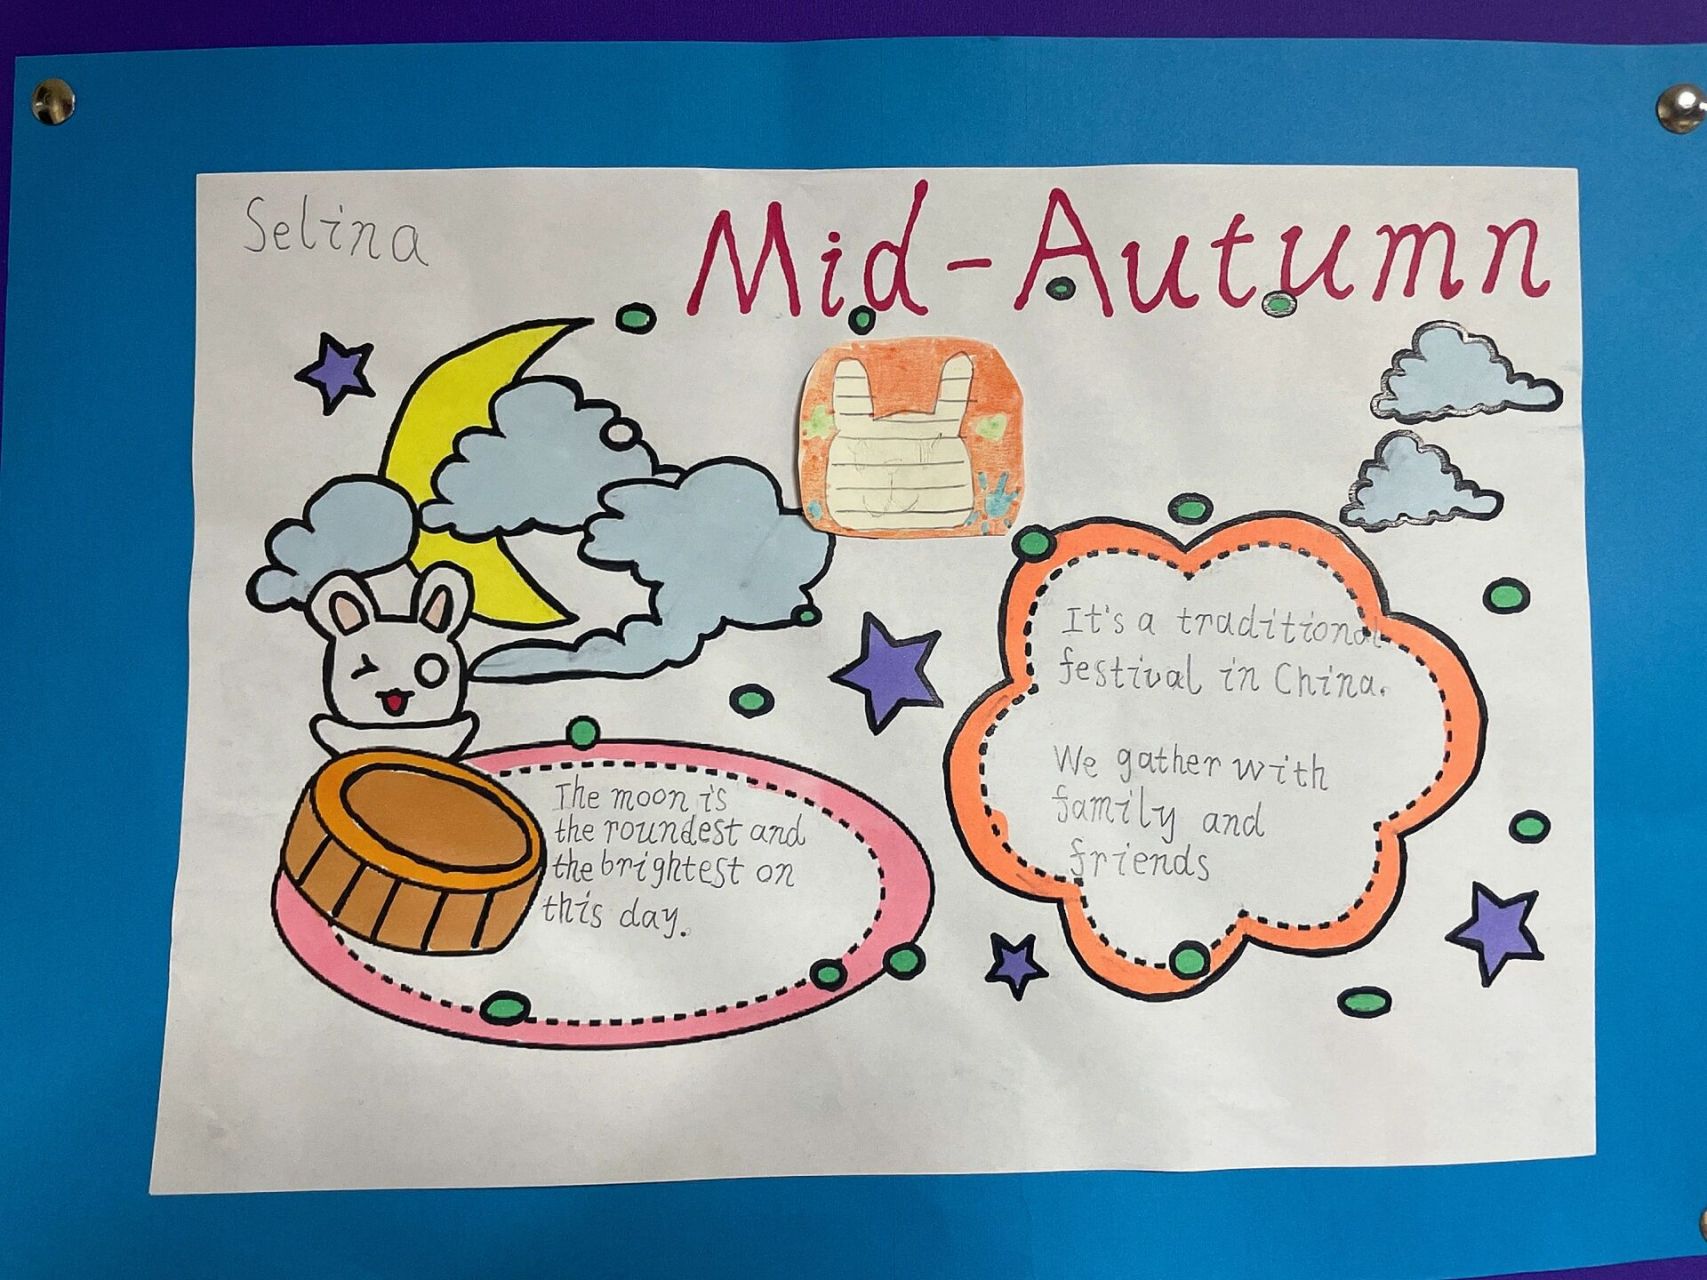 Selina
Mid-Autumn
It's a traditional
festival in China.
We gather with
family and
friends
The moon is
the roundest and
the brightest on
this day.